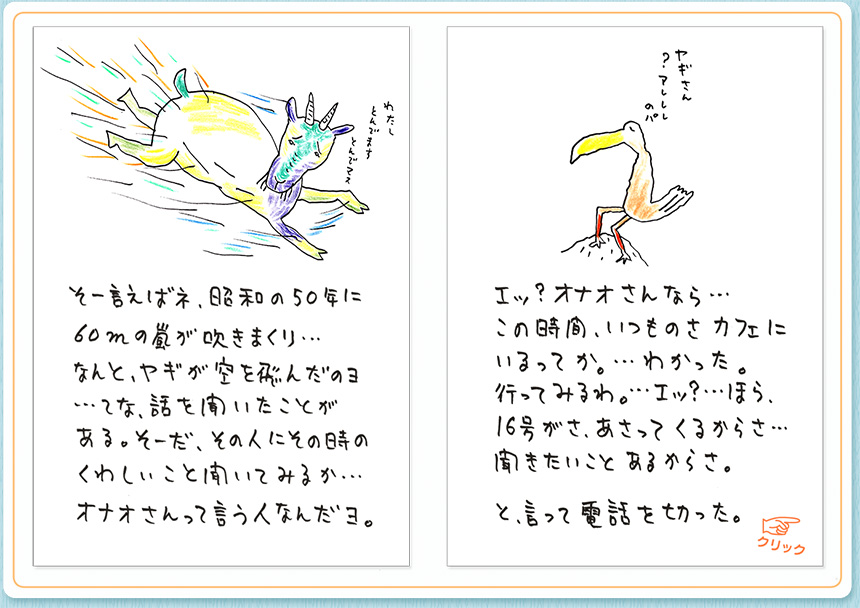 わたし
とんでます
とんでマス
そー言えばネ、昭和の50年に
60mの嵐が吹きまくり…
なんと、ヤギが空を飛んだのヨ
…てな、話を聞いたことが
ある。そーだ、その人にその時の
くわしいこと聞いてみるか…
オナオさんって言う人なんだヨ。
ヤギさん
?アレレレ
のパ
エッ?オナオさんなら…
この時間、いつものさ カフェに
いるってか。…わかった。
行ってみるわ。…エッ?…ほら、
16号がさ、あさってくるからさ…
聞きたいことあるからさ。
と、言って電話を切った。
クリック